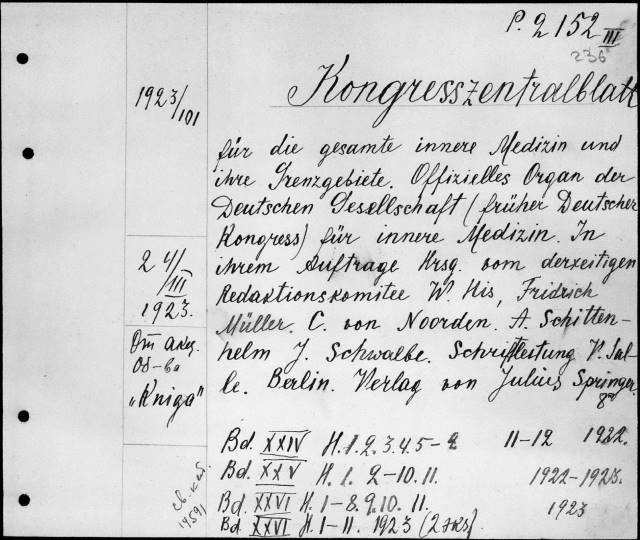 P. 2152 III
236
1923/101
Kongresszentralblatt
für die gesamte innere Medizin und
ihre Grenzgebiete. Offizielles Organ der
Deutschen Gesellschaft (früher Deutscher
Kongress) für innere Medizin. In
ihrem Auftrage Hrsg. vom derzeitigen
Redaktionskomitee W. His, Fridrich
Müller. C. von Noorden. A. Schitten-
helm J. Schwalbe. Schriftleitung V. Sal-
le. Berlin. Verlag von Julius Springer.
8°
24/III
1923.
От акц.
Об-ва
„Kniga"
Bd. XXIV H. 1. 2. 3. 4. 5- 11-12 1922.
Bd. XXV H. 1. 2-10. 11. 1922-1923.
Bd. XXVI H. 1-8. 9. 10. 11. 1923
Bd. XXVI H. 1-11. 1923 (2 экз).